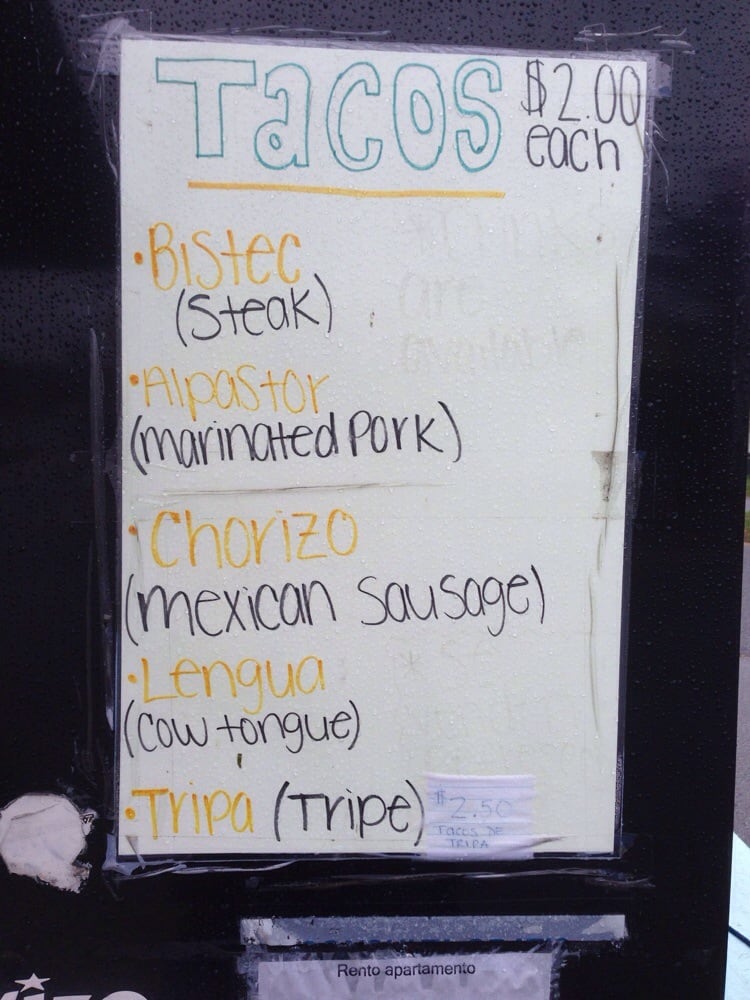 Tacos $2.00
each
• Bistec
(Steak)
• Alpastor
(marinated Pork)
• Chorizo
(mexican sausage)
• Lengua
(cow tongue)
• Tripa (Tripe)
$2.50
TACOS DE
TRIPA
Rento apartamento